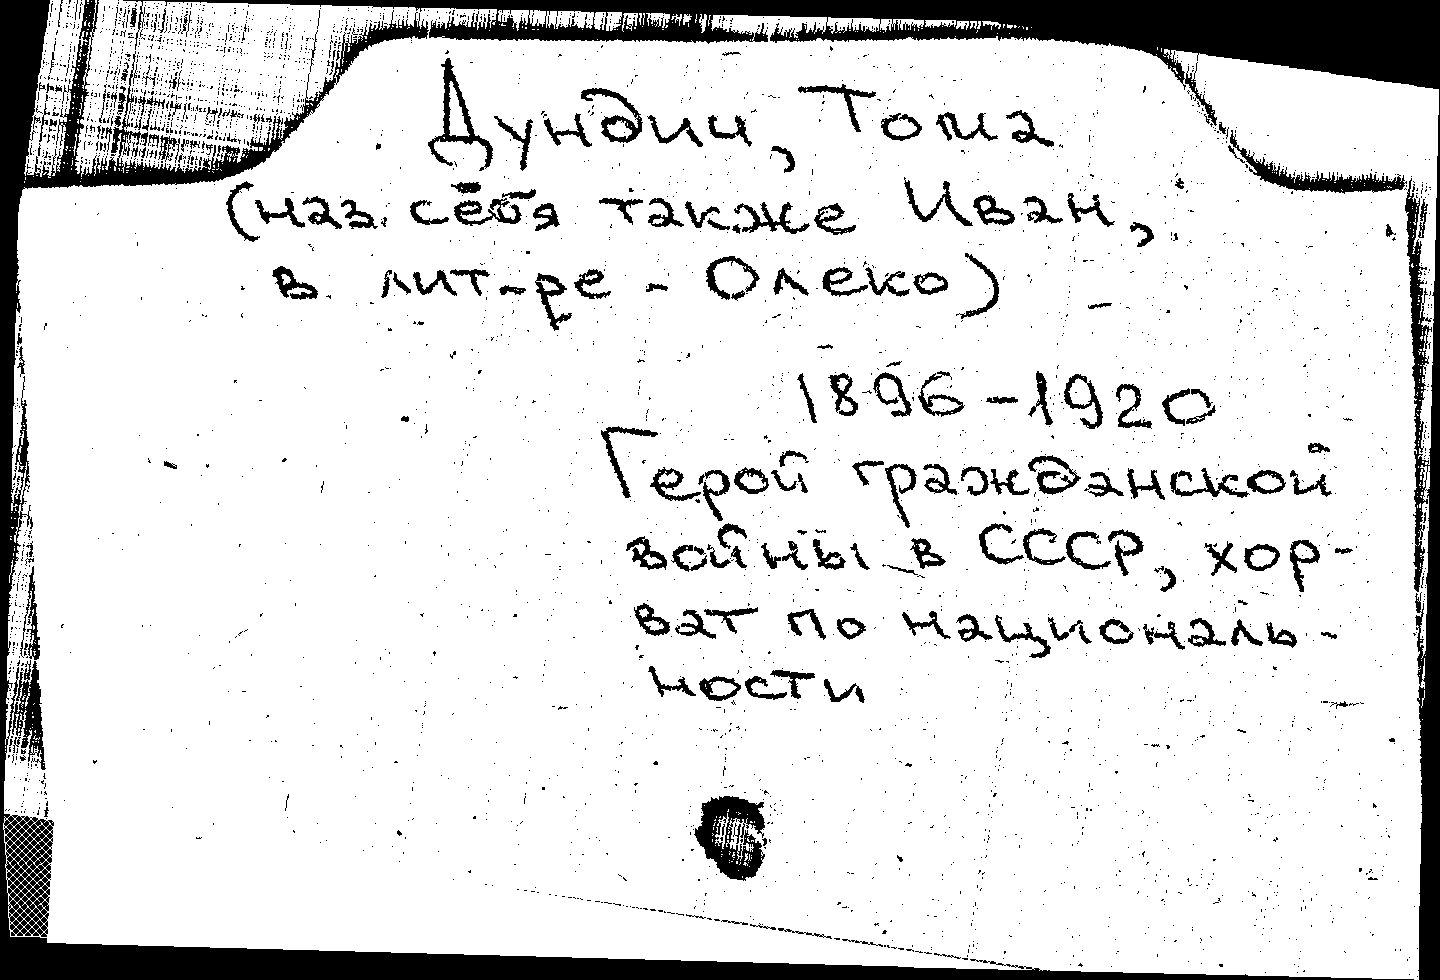 Дундич, Тома
(наз. себя также Иван,
в лит-ре - Олеко)
1896-1920
Герой гражданской
войны в СССР, хор-
ват по националь-
ности